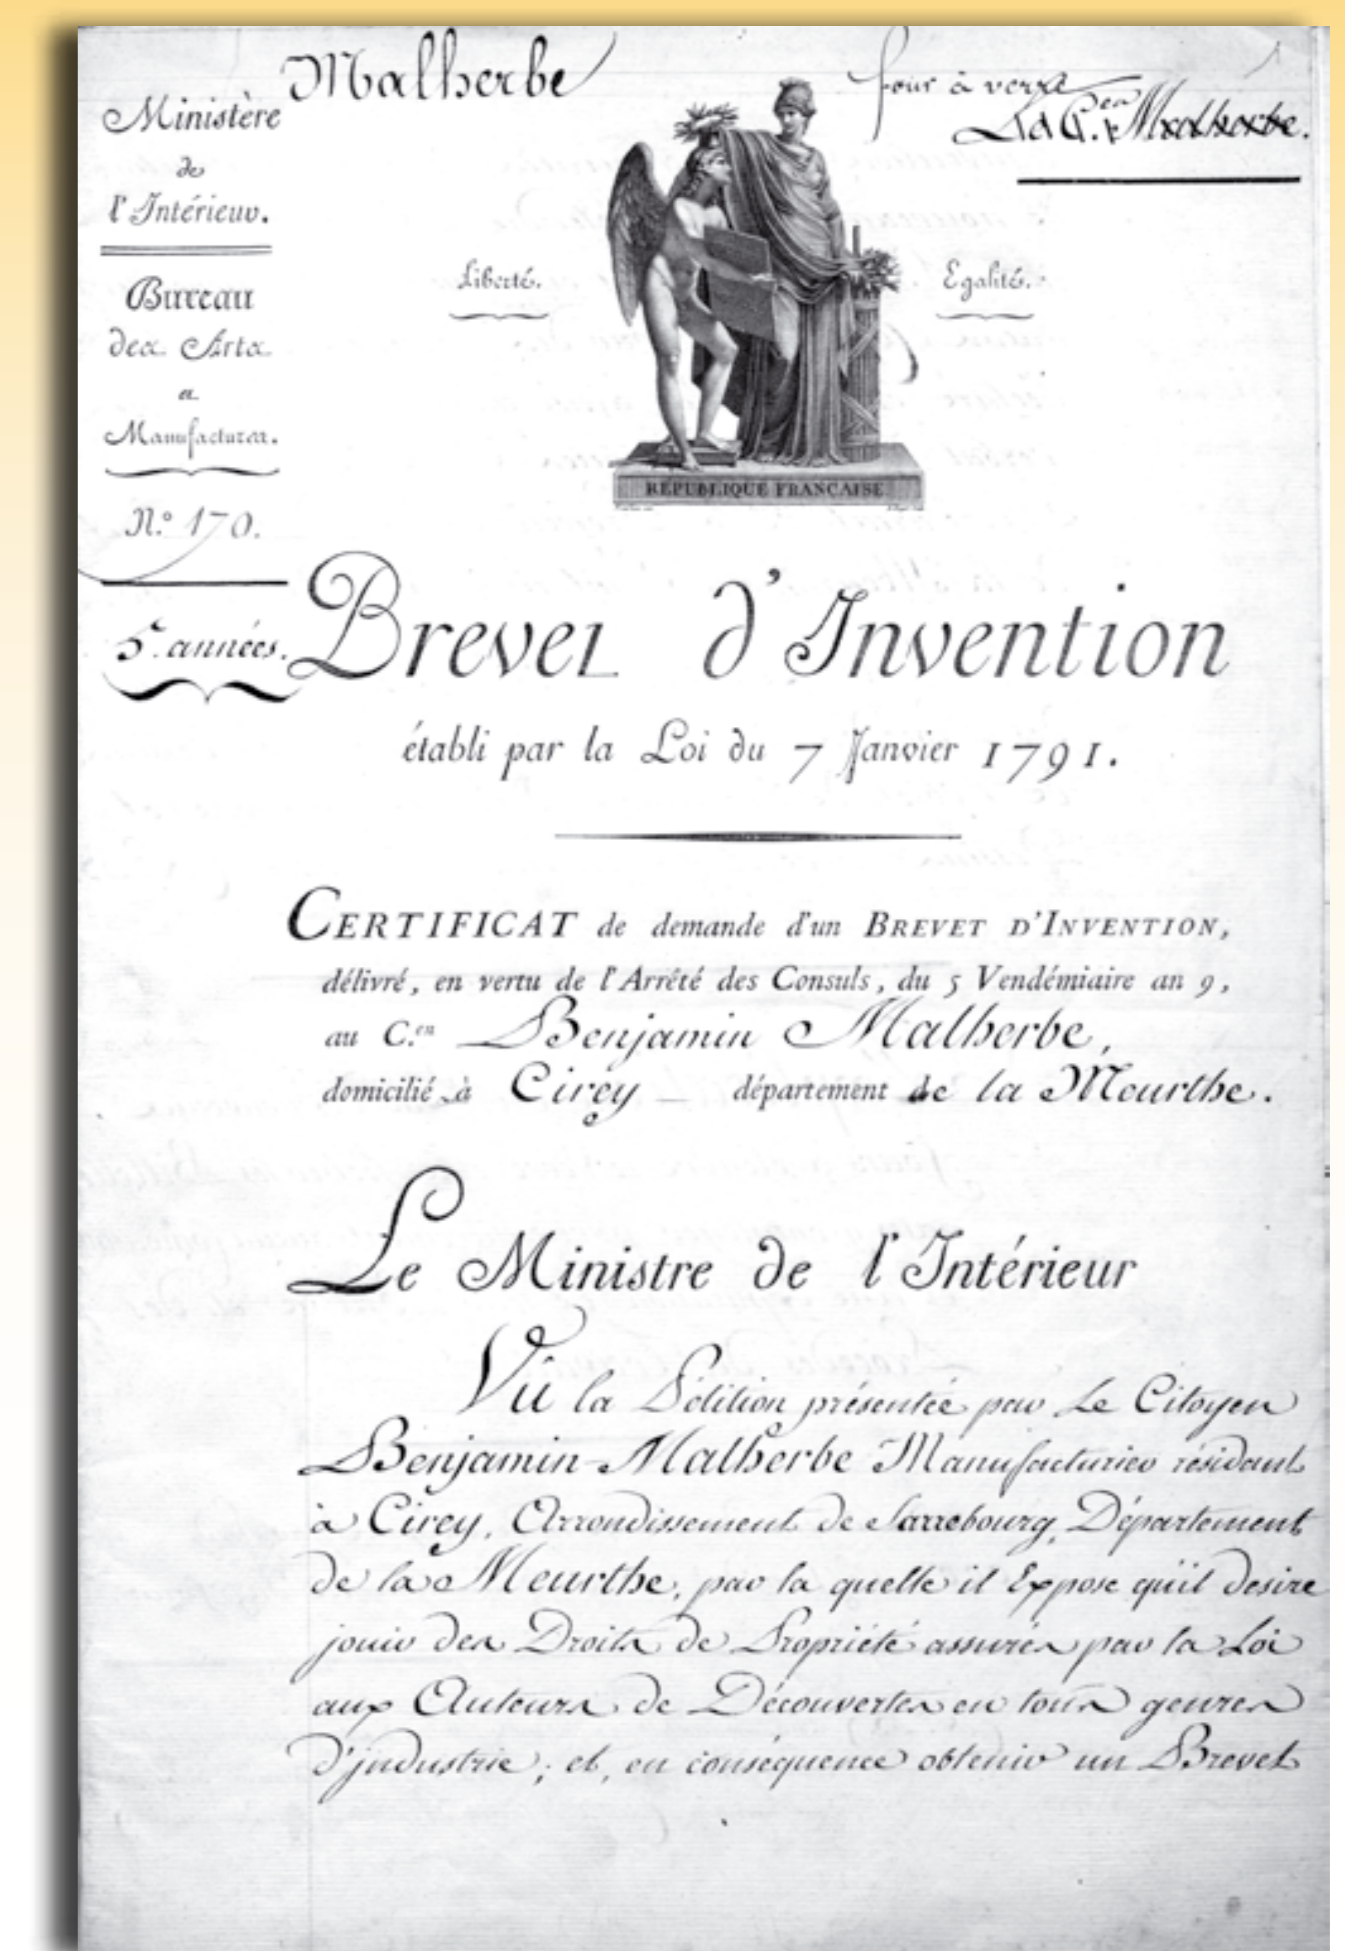 Malherbe
four à verre
Malherbe.
Ministère
de
l'Intérieur.
Bureau
des Arts
et
Manufactures.
N.° 170.
5 années.
Liberté.
Egalité.
RÉPUBLIQUE FRANÇAISE
Brevet d'Invention
établi par la Loi du 7 Janvier 1791.
CERTIFICAT de demande d'un BREVET D'INVENTION,
délivré, en vertu de l'Arrêté des Consuls, du 5 Vendémiaire an 9,
au C.en Benjamin Malherbe,
domicilié à Cirey département de la Meurthe.
Le Ministre de l'Intérieur
Vu la Pétition présentée par Le Citoyen
Benjamin-Malherbe Manufacturier résidant
à Cirey, Arrondissement de Sarrebourg, Département
de la Meurthe, par la quelle il Expose qu'il desire
jouir des Droits de Propriété assurés par la Loi
aux Auteurs de Découvertes en tous genres
d'industrie; et, en conséquence obtenir un Brevet